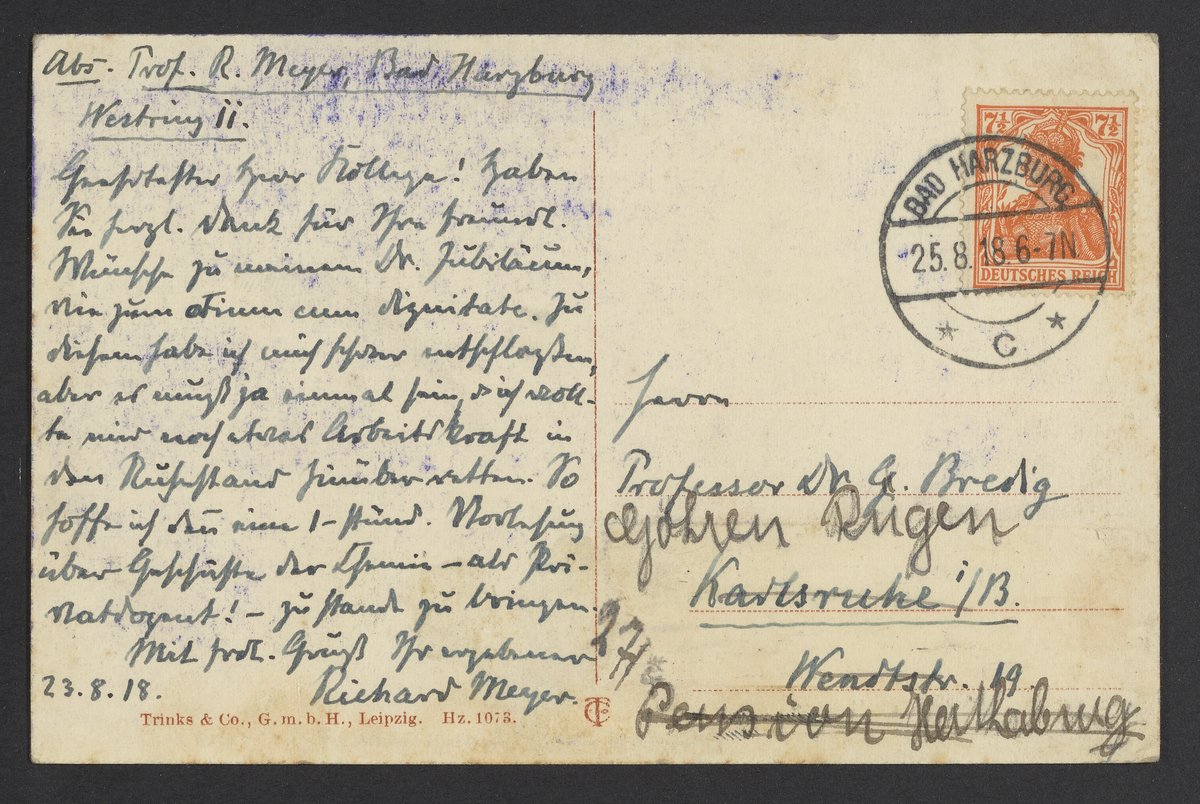 Abs. Prof. R. Meyer, Bad Harzburg
Westring 11.
Geehrtester Herr Kollege! Haben
Sie herzl. Dank für Ihre freundl.
Wünsche zu meinem Dr. Jubiläum,
wie zum otium cum dignitate. Zu
diesem habe ich mich schwer entschloßen,
aber es muß ja einmal sein, u ich woll-
te mir noch etwas Arbeitskraft in
den Ruhestand hinüber retten. So
hoffe ich den eine 1-stünd. Vorlesung
über Geschichte der Chemie – als Pri-
vatdozent! – zu stande zu bringen.
Mit frdl. Gruß Ihr ergebener
23.8.18. Richard Meyer.
Trinks & Co., G. m. b. H., Leipzig. Hz. 1073.
TC
7½ 7½
DEUTSCHES REICH
BAD HARZBURG
25.8.18.6-7N
* C *
Herrn
Professor Dr. G. Bredig
Göhren Rügen
Karlsruhe i/B.
27/
Wendtstr. 19.
Pension